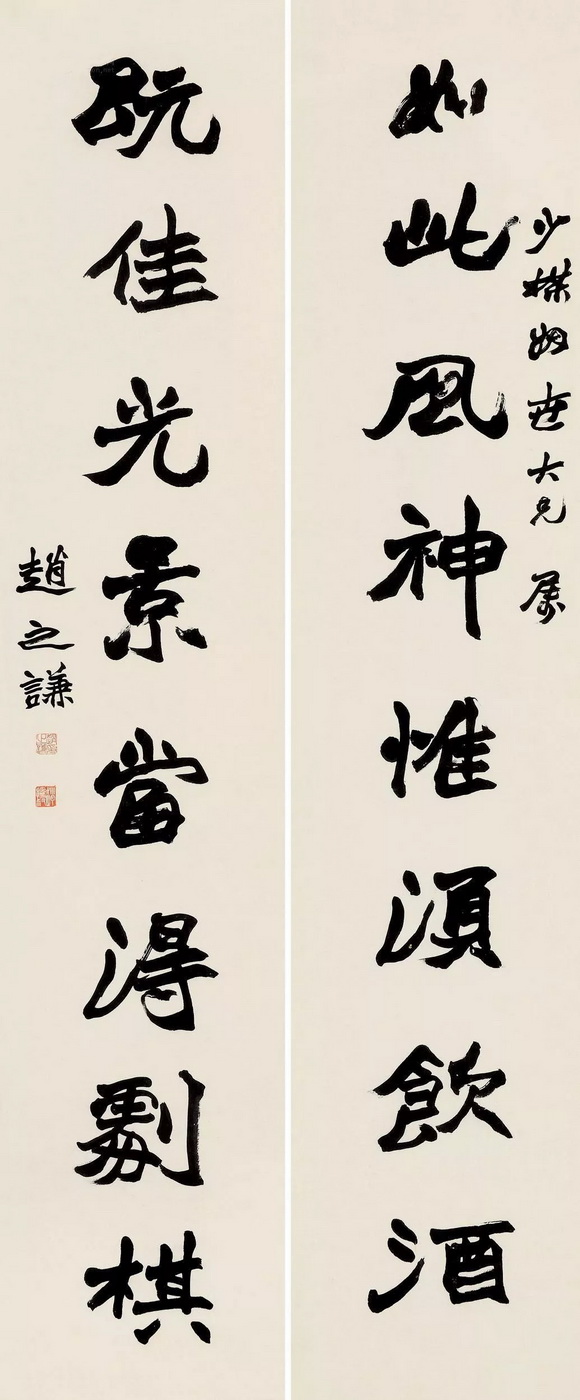 少楳姻世大兄屬
如此風神惟湏飲酒
既佳光景當淂劇棋
趙之謙